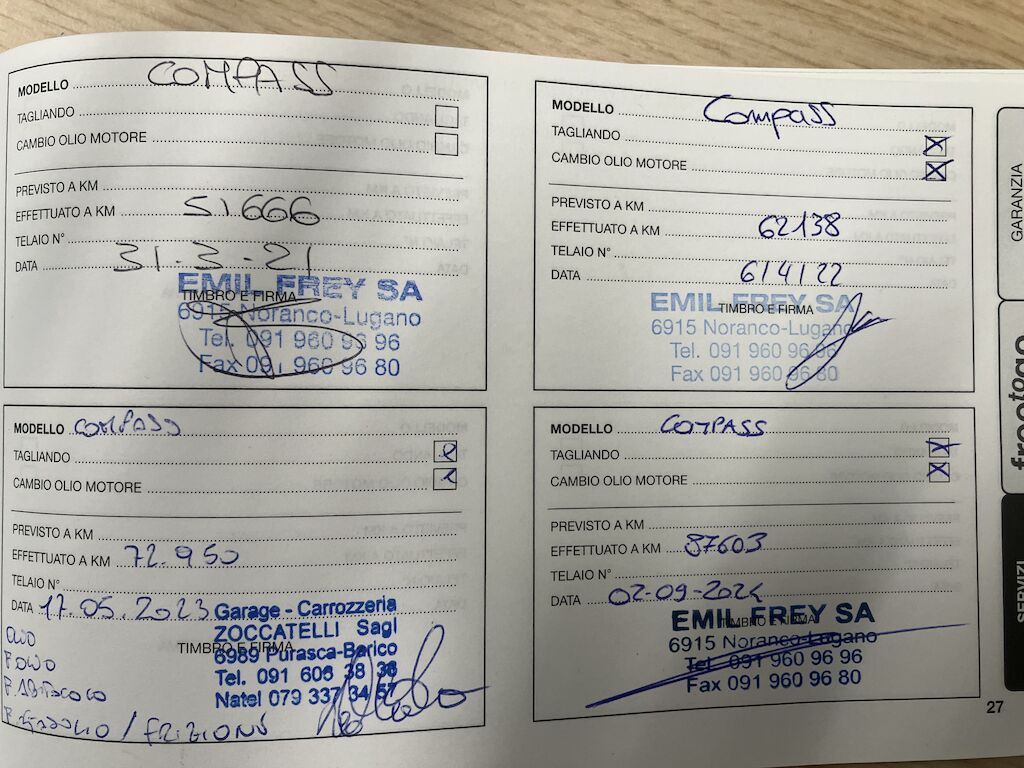 MODELLO COMPASS
TAGLIANDO
CAMBIO OLIO MOTORE
PREVISTO A KM
EFFETTUATO A KM 51666
TELAIO N°
DATA 31-3-21
EMIL FREY SA
TIMBRO E FIRMA
6915 Noranco-Lugano
Tel. 091 960 96 96
Fax 091 960 96 80
MODELLO Compass
TAGLIANDO
CAMBIO OLIO MOTORE
PREVISTO A KM
EFFETTUATO A KM 62138
TELAIO N°
DATA 6/4/22
EMIL FREY SA
TIMBRO E FIRMA
6915 Noranco-Lugano
Tel. 091 960 96 96
Fax 091 960 96 80
MODELLO COMPASS
TAGLIANDO
CAMBIO OLIO MOTORE
PREVISTO A KM
EFFETTUATO A KM 72.950
TELAIO N°
DATA 17.05.2023
Garage - Carrozzeria
ZOCCATELLI Sagl
TIMBRO E FIRMA
6989 Purasca-Barico
Tel. 091 606 38 38
Natel 079 337 34 57
OLIO
F. OLIO
F. ABITACOLO
/ FRIZIONE
MODELLO COMPASS
TAGLIANDO
CAMBIO OLIO MOTORE
PREVISTO A KM
EFFETTUATO A KM 87603
TELAIO N°
DATA 02-09-2024
EMIL FREY SA
TIMBRO E FIRMA
6915 Noranco-Lugano
Tel. 091 960 96 96
Fax 091 960 96 80
27
GARANZIA
freetogo
SERVIZI